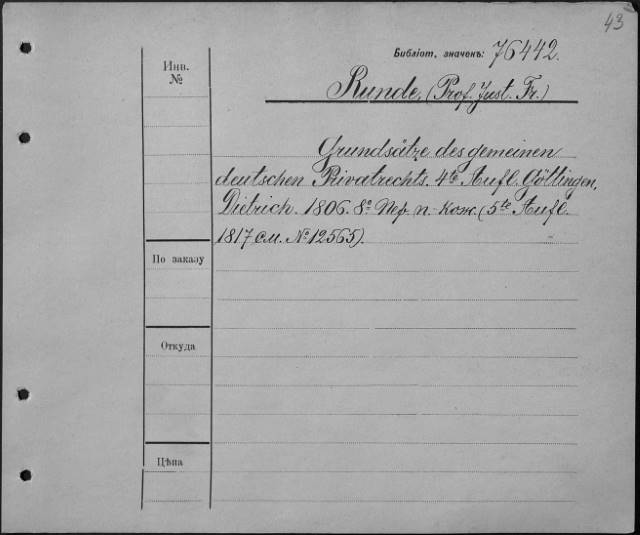 43
Библіот. значенъ: 76442.
Инв. №
Runde, (Prof. Just. Fr.)
Grundsätze des gemeinen
deutschen Privatrechts. 4te Aufl. Göttingen,
Dietrich. 1806. 8º Пер. п. кож. (5te Aufl.
1817 см. № 12565).
По заказу
Откуда
Цѣна